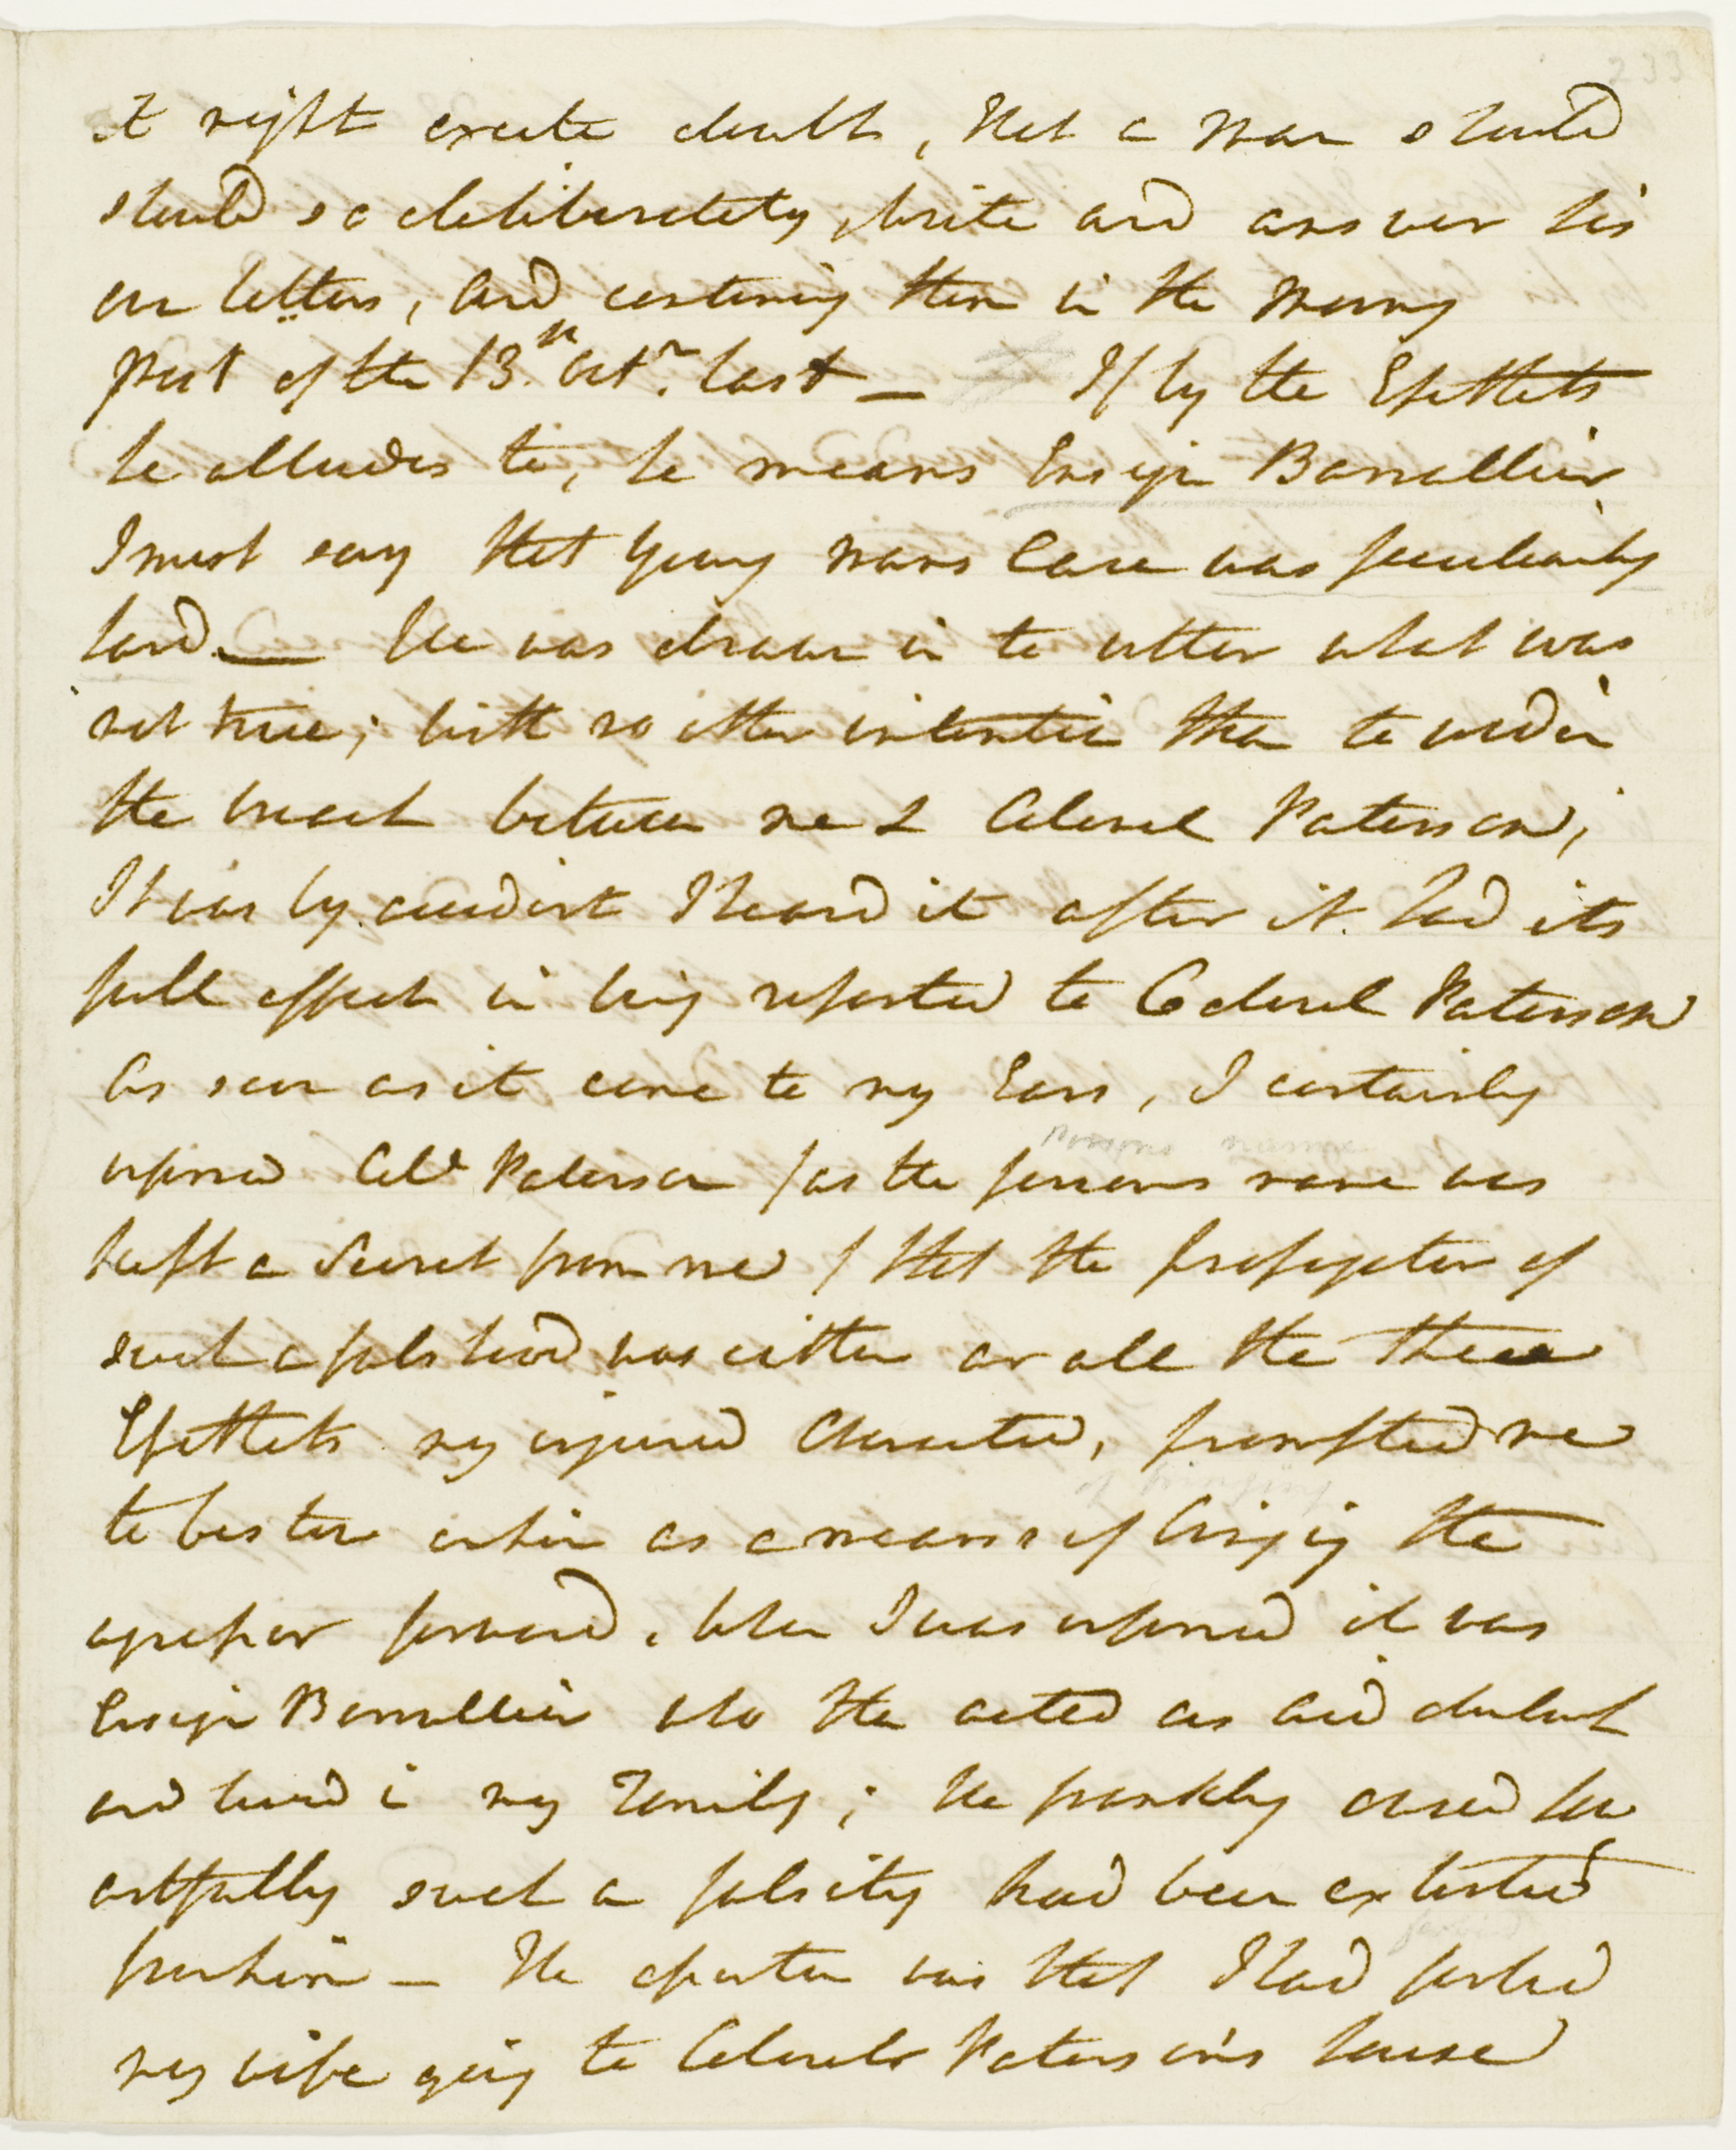 it might create doubts, that a Man should
should so deliberately write and answer his
own letters, and containing them in the Morning
part of the 13.th Octr. last — If by the Epithets
he alludes to, he means Ensign Barrallier
I must say that young mans Case was peculiarly
hard — He was drawn in to utter what was
not true; with no other intention than to widen
the breach between me & Colonel Paterson;
It was by accident I heard it after it had its
full effect in being reported to Colonel Paterson
As soon as it came to my Ears, I certainly
informed Coll Paterson / as the persons name was
kept a Secret from me / that the propagator of
such a falshood was either or all the three
Epithets my injured Character, prompted me
to bestow on him as a means of bringing the
agressor forward, when I was informed it was
Ensign Barrallier who then acted as Aid du Camp
and lived in my Family; He frankly owned how
artfully such a falsity had been extorted
from him — The assertion was that I had forbid
my wife going to Colonels Paterson's house
233
persons name
of bringing
forbid